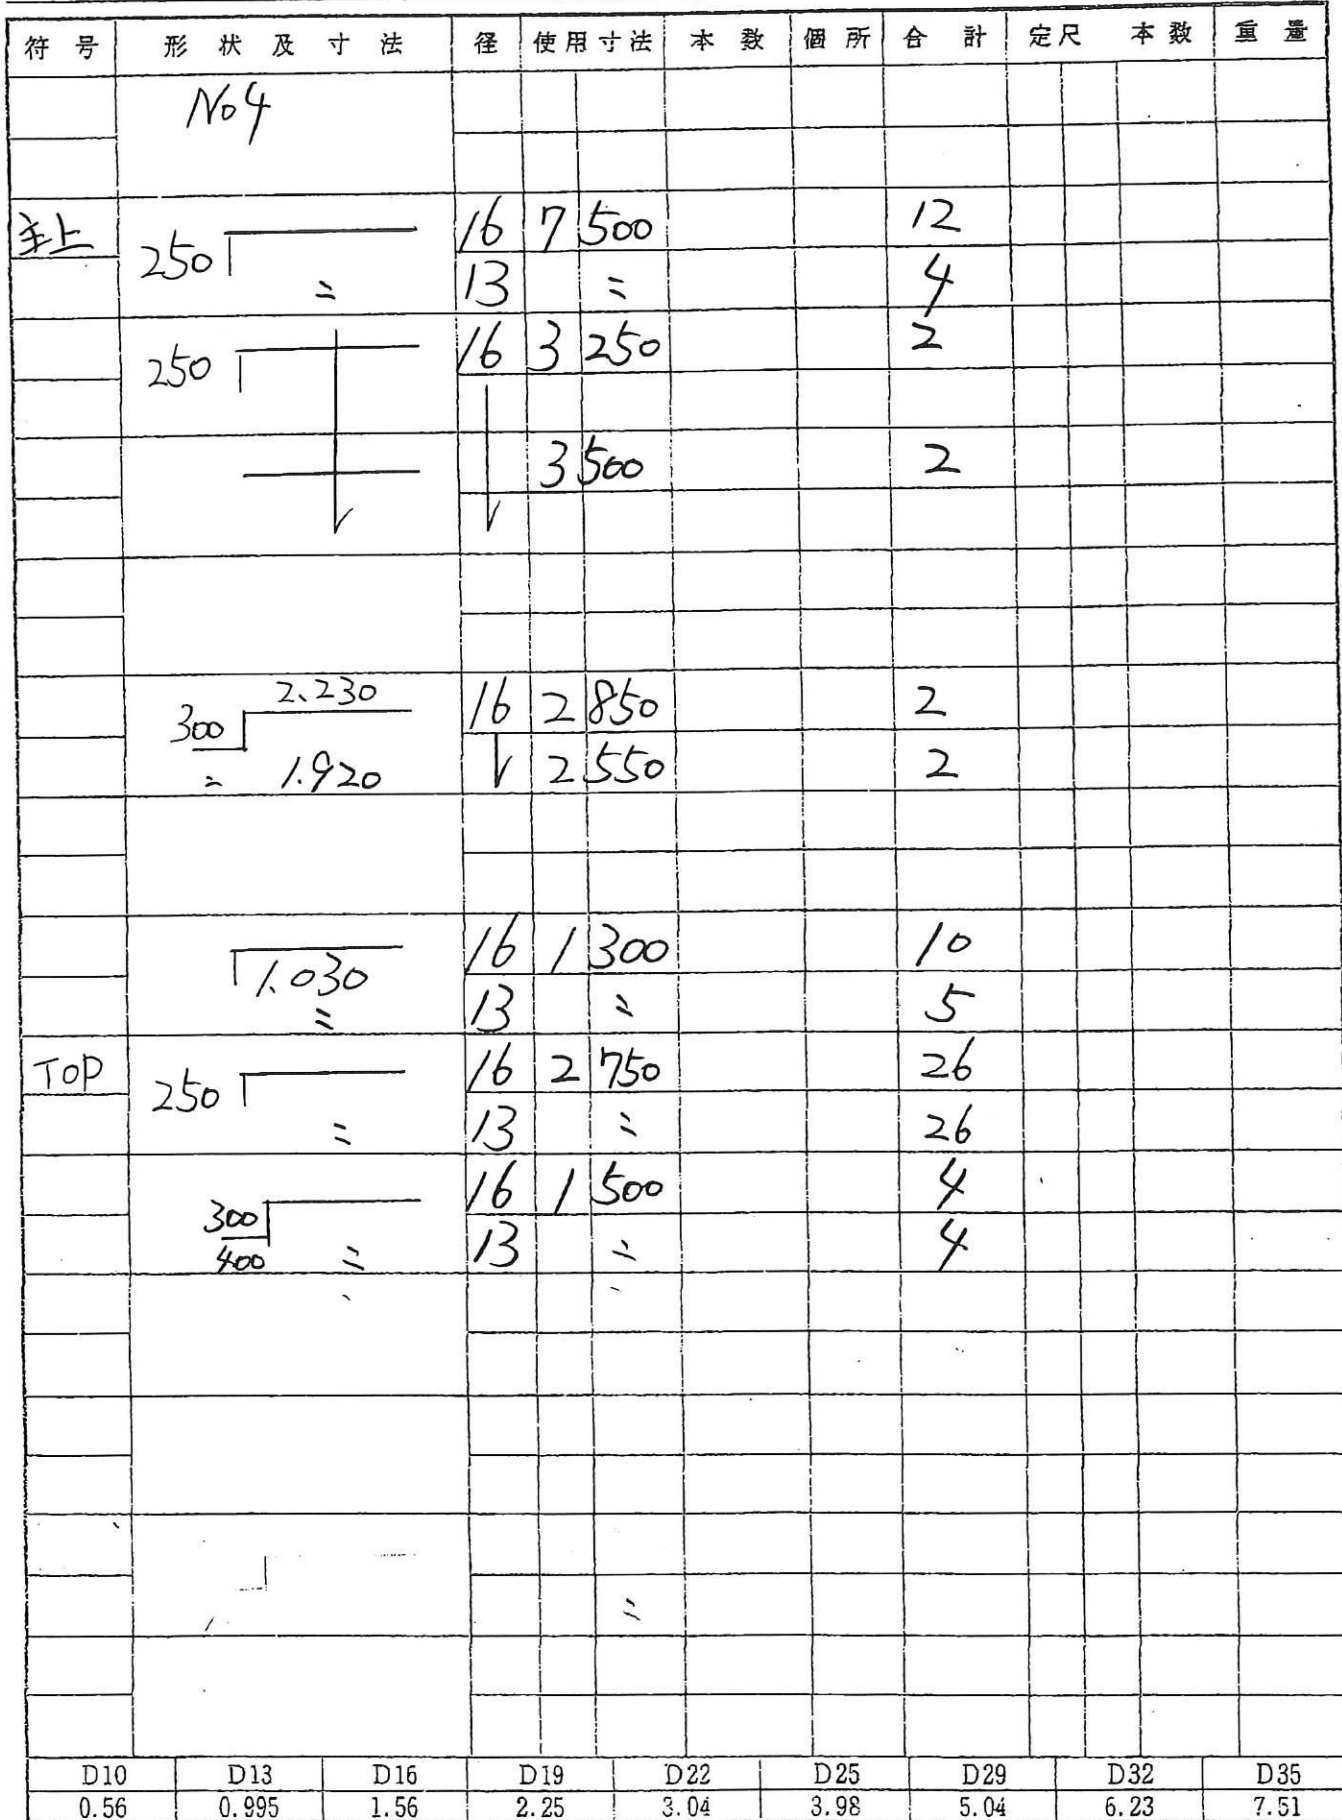 符号 形状及寸法 径 使用寸法 本数 個所 合計 定尺 本数 重量
No4
主上 250 16 7 500 12
〃 13 〃 4
250 16 3 250 2
3 500 2
300 2.230 16 2 850 2
〃 1.920 2 550 2
1.030 16 1 300 10
〃 13 〃 5
TOP 250 16 2 750 26
〃 13 〃 26
300 16 1 500 4
400 〃 13 〃 4
〃
D10 D13 D16 D19 D22 D25 D29 D32 D35
0.56 0.995 1.56 2.25 3.04 3.98 5.04 6.23 7.51